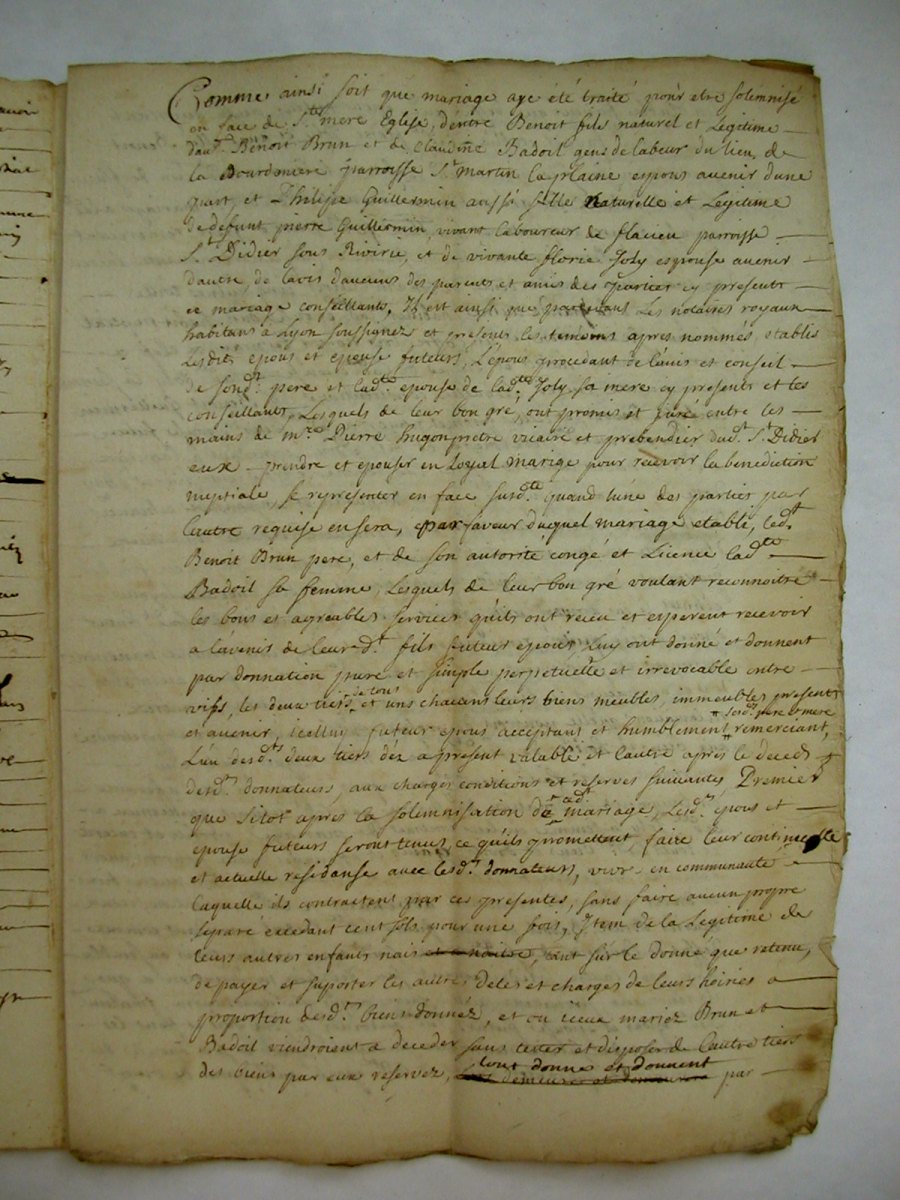 Comme ainsi soit que mariage aye été traité pour etre solemnisé
en face de Ste mere Eglise, dentre Benoit fils naturel et Legitime
daut. Benoit Brun et de Claudine Badoil gens de labeur du lieu de
la Bourdonniere parroisse St. martin la plaine epous avenir dune
part, et Philippe Guillermin aussi fille Naturelle et Legitime
de defunt pierre Guillermin, vivant laboureur de flacieu parroisse
St. Didier sous Riviríe, et de vivante florie Joly espouse avenir
dautre, de lavis daucuns des parents et amis des parties cy presents
ce mariage conseillants, Il est ainsi que pardevans Les notaires royaux
habitans a Lyon soussignez et presents les temoins apres nommés, etablis
Lesdits epous et epouse futeurs, L'epous procedant de l'avis et conseil
de sond. pere et lad.te epouse de lad.te Joly sa mere cy presents et les
conseillants, Lesquels de leur bon gré, ont promis et juré entre les
mains de m.re Pierre hugon pretre vicaire et prebendier dud.t St. Didier
eux prendre et epouser en Loyal mariage pour recevoir la benediction
nuptiale, se representer en face susd.te quand lune des parties par
lautre requise en sera, En faveur duquel mariage etabli, led.t
Benoit Brun pere, et de son autorité congé et Licence lad.te
Badoil sa femme, Lesquels de leur bon gré voulant reconnoitre
les bons et agreables services quils ont receu et esperent recevoir
a l'avenir de leurd.t fils futeur epous, Luy ont donné et donnent
par donnation pure et simple perpetuelle et irrevocable entre
vifs, les deux tiers de tous et uns chacuns leurs biens meubles, immeubles presents
et avenir, icelluy futeur epous acceptant et humblement lesd. pere et mere remerciant,
L'un desd.ts deux tiers déz apresent valable et lautre apres le deced
desd. donnateurs, aux charges conditions et reserves suivantes Premier
que sitot apres la solemnisation dud. mariage, Lesd. epous et
epouse futeurs seront tenus, ce quils promettent, faire leur continuelle
et actuelle residanse avec lesd. donnateurs, vivre en communauté
laquelle ils contractent par ces presentes, sans faire aucun propre
separé excedant cent sols pour une fois, Item de la Legitime de
leurs autres enfants nais et a naitre, tant sur le donné que retenu,
de payer et suporter les autres detes et charges de leurs hoiries a
proportion desd. biens donnéz, et ou iceux mariez Brun et
Badoil viendroient a deceder sans tester et disposer de lautre tiers
des biens par eux reservez, lont donné et donnent par